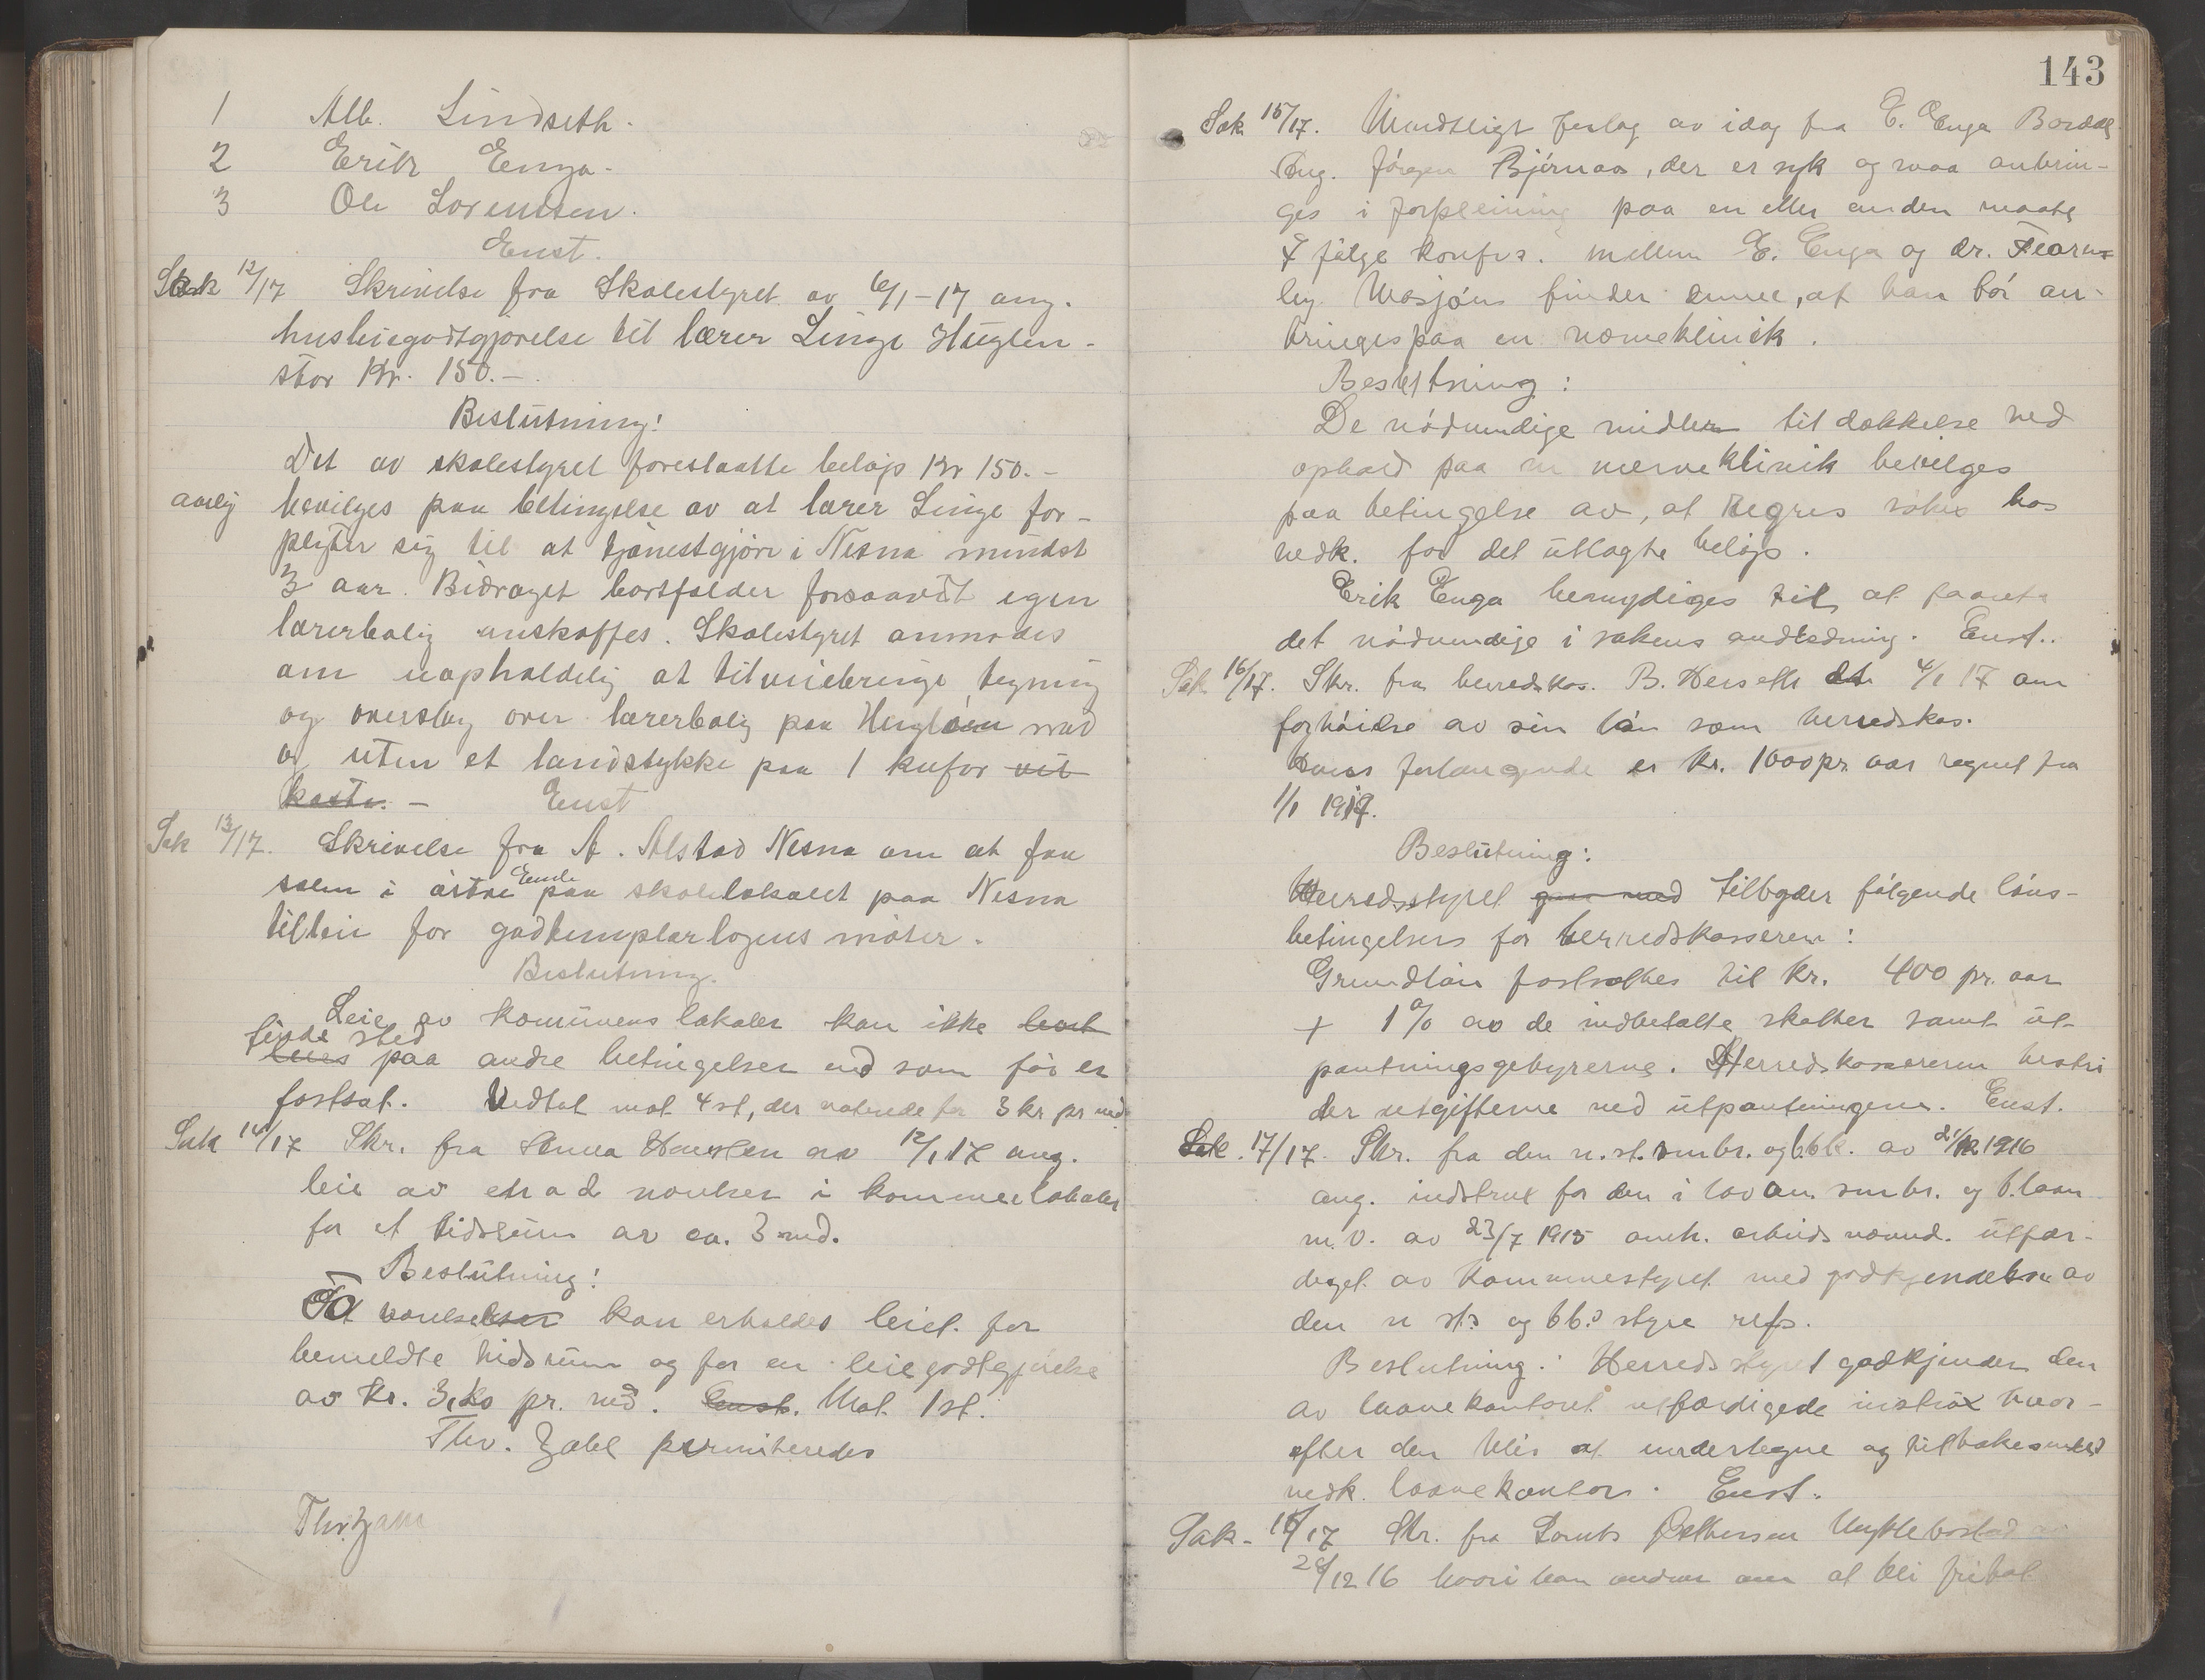 1 Alb. Lindseth.
2 Erik Enga.
3 Ole Lorentsen.
Enst.
Sak 12/17 Skrivelse fra Skolestyret av 6/1-17 ang.
husleiegodtgjørelse til lærer Linge Huglen.
stor Kr. 150.-
Beslutning!
Det av skolestyret foreslaatte beløp Kr 150.-
aarlig bevilges paa betingelse av at lærer Linge for-
pligter sig til at tjenestgjøre i Nesna mindst
3 aar. Bidraget bortfalder forsaavidt egen
lærerbolig anskaffes. Skolestyret anmodes
om uopholdelig at tilveiebringe tegning
og overslag over lærerbolig paa Huglen med
og uten et landstykke paa 1 kufor vil
koste. - Enst
Sak 13/17. Skrivelse fra A. Alstad Nesna om at faa
salen i østre Ende paa skolelokalet paa Nesna
tilleie for godtemplarlogens møter.
Beslutning.
Leie av kommunens lokaler kan ikke
finde sted
leies paa andre betingelser end som før er
fastsat. Vedtat mot 4 st, der voterede for 3 kr pr md
Sak 14/17 Skr. fra Anna av 12/1 17 ang.
leie av et a 2 værelser i kommunelokalet
for et tidsrum av ca. 3 md.
Beslutning!
To værelser kan erholdes leiet for
bemeldte tidsrum og for en leiegodtgjørelse
av kr. pr. md. Enst. Mot 1 st.
Thv. Zahl permiteredes
Thv. Zahl
143
Sak 15/17. Mundtligt forslag av idag fra E. Enga Bardal
ang. Jørgen Bjørnaas, der er syk og maa anbrin-
ges i forpleining paa en eller anden maate
I følge konfrs. mellem E. Enga og dr. Fearn-
ley Mosjøen finder denne, at han bør an-
bringes paa en nerveklinik.
Beslutning:
De nødvendige midler til dækkelse ved
ophold paa en nerveklinik bevilges
paa betingelse av, at regres søkes hos
vedk. for det utlagte beløp.
Erik Enga bemyndiges til at foreta
det nødvendige i sakens andledning. Enst..
Sak 16/17. Skr. fra herredskas. B. Herseth dt. 4/1 17 om
forhøielse av sin løn som herredskas.
Hans forlangende er kr. 1000 pr. aar regnet fra
1/1 1917.
Beslutning:
Herredsstyret gaar med tilbyder følgende løns-
betingelser for herredskasseren:
Grundløn fastsættes til kr. 400 pr. aar
+ 1% av de indbetalte skatter samt ut-
pantningsgebyrerne. Herredskassereren bestri
der utgifterne ved utpantningene. Enst.
Sak. 17/17. Skr. fra den n. st. smbr. og b.bk. av 21/12 1916
ang. instrux for den i lov om smbr. og b.laan
m.v. av 23/7 1915 omh. arbeidsnævnd. utfær-
diget av kommunestyret med godkjendelse av
den n st.s og bb.s styre refs.
Beslutning: Herredsstyret godkjender den
av laanekontoret utfærdigede instrux hvor-
efter den blir at undertegne og tilbakesendes
vedk. laanekontor. Enst.
Sak. 18/17 Skr. fra
28/12 16 hvori han andrar om at bli fritat